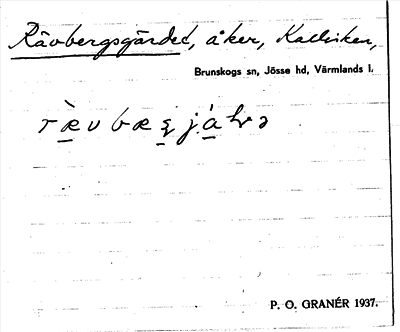 Rävbergsgärdet, åker, Kallviken,
Brunskogs sn, Jösse hd, Värmlands l.
P. O. GRANÉR 1937.